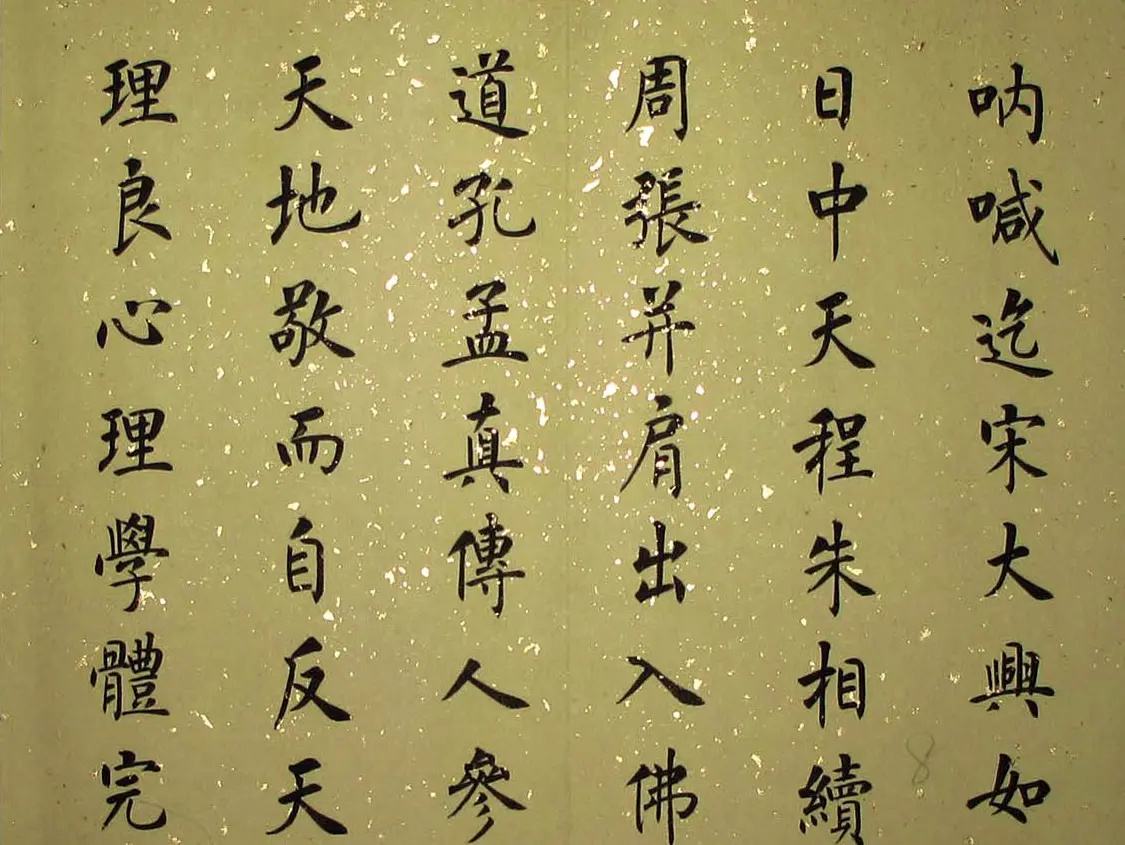 吶喊迄宋大興如
日中天程朱相續
周張并肩出入佛
道孔孟真傳人參
天地敬而自反天
理良心理學體完
8